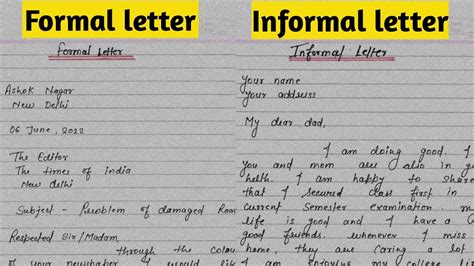 Formal letter
Formal Letter
Ashok Nagar
New Delhi
06 June, 2022
The Editor
The times of india
New delhi
Subject - Problem of damaged Road
Respected Sir/Madam,
through the colou
Informal letter
Informal Letter
Your name
Your address
My dear dad,
I am doing good. I
You and mom are also in g
helth. I am happy to share
that I secured class first in
current Semester examination. m
life is good and I have a G
good friends. whenever I miss
home, they are caring a lo